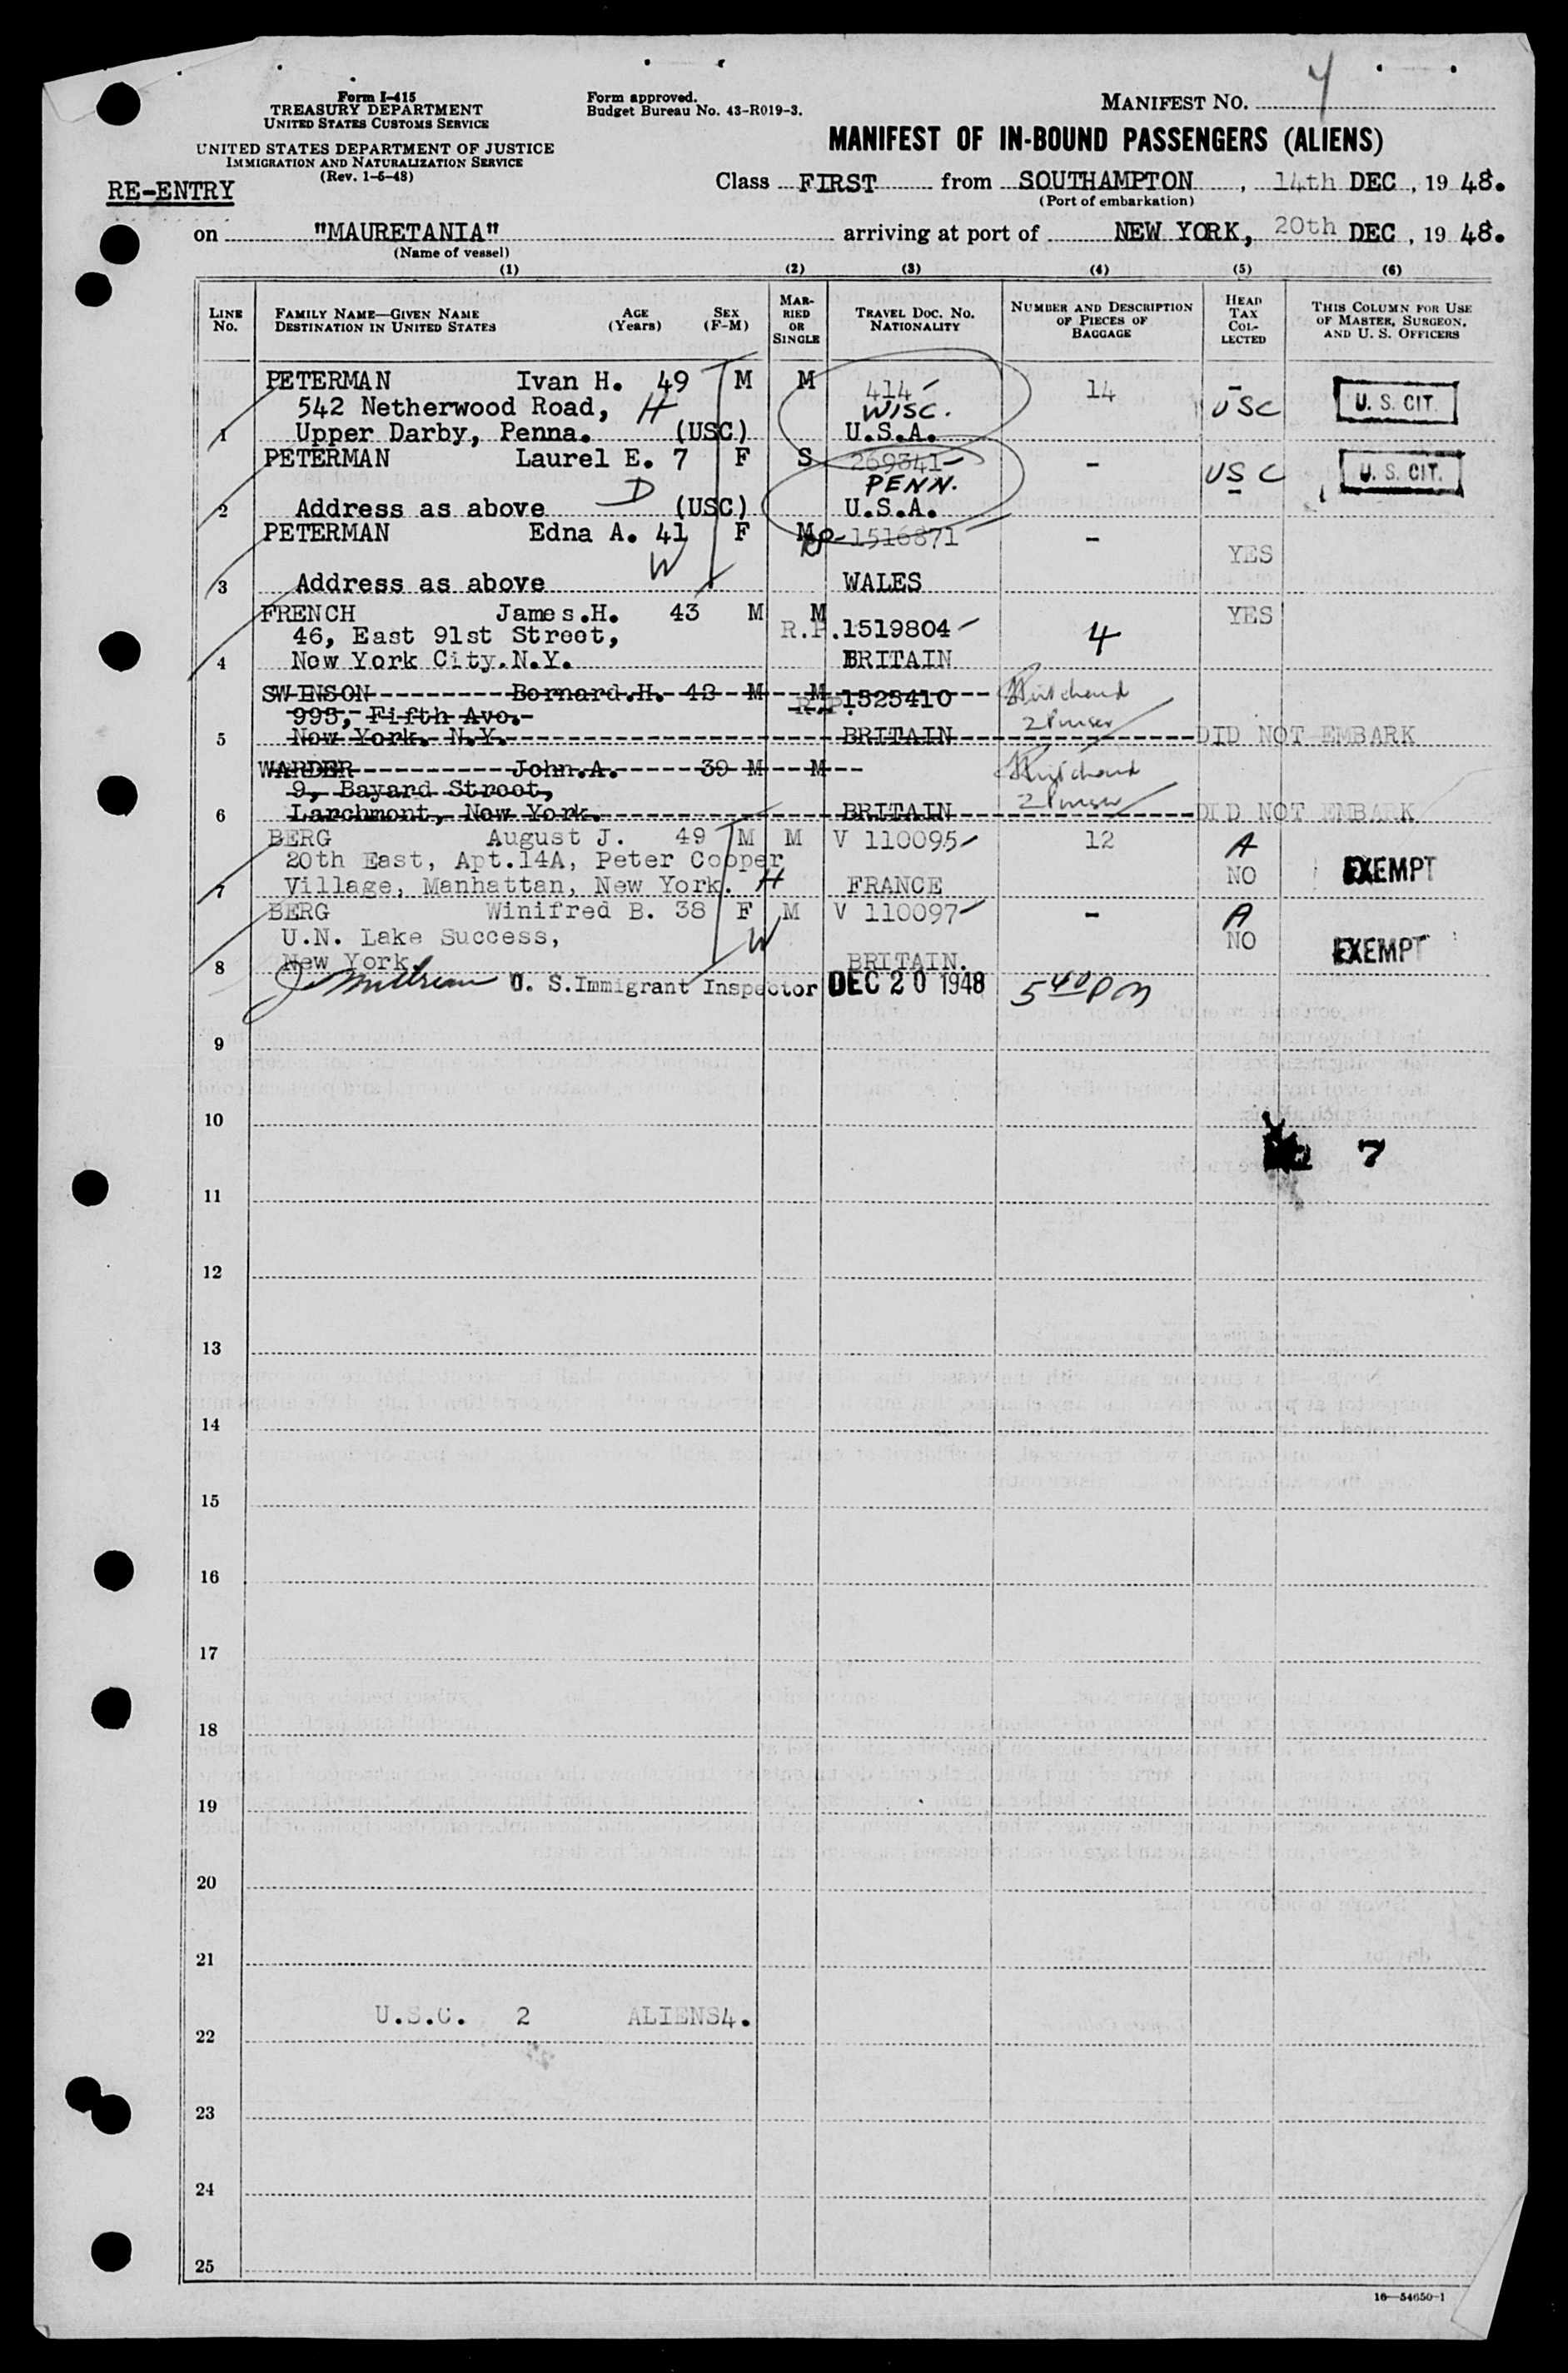 Form I-415
TREASURY DEPARTMENT
UNITED STATES CUSTOMS SERVICE
UNITED STATES DEPARTMENT OF JUSTICE
IMMIGRATION AND NATURALIZATION SERVICE
(Rev. 1-5-48)
Form approved.
Budget Bureau No. 43-R019-3.
MANIFEST NO. 4
MANIFEST OF IN-BOUND PASSENGERS (ALIENS)
RE-ENTRY
Class FIRST from SOUTHAMPTON, 14th DEC, 1948.
(Port of embarkation)
on "MAURETANIA" arriving at port of NEW YORK, 20th DEC, 1948.
(Name of vessel)
(1) (2) (3) (4) (5) (6)
LINE NO. FAMILY NAME—GIVEN NAME DESTINATION IN UNITED STATES AGE (Years) SEX (F-M) MARRIED OR SINGLE TRAVEL DOC. NO. NATIONALITY NUMBER AND DESCRIPTION OF PIECES OF BAGGAGE HEAD TAX COLLECTED THIS COLUMN FOR USE OF MASTER, SURGEON, AND U. S. OFFICERS
PETERMAN Ivan H. 49 M M 414 14 -
542 Netherwood Road, H WISC. USC U. S. CIT.
1 Upper Darby, Penna. (USC) U.S.A.
PETERMAN Laurel E. 7 F S 269341 - USC U. S. CIT.
D PENN.
2 Address as above (USC) U.S.A.
PETERMAN Edna A. 41 F M RP 1516871 -
W YES
3 Address as above WALES
FRENCH James.H. 43 M M YES
46, East 91st Street, R.P. 1519804 4
4 New York City.N.Y. BRITAIN
SWENSON Bernard.H. 42 M M R.P. 1525410
993, Fifth Ave. 2 Purser
5 New York. N.Y. BRITAIN DID NOT EMBARK
WARDER John.A. 39 M M
9, Bayard Street, 2 Purser
6 Larchmont, New York. BRITAIN DID NOT EMBARK
BERG August J. 49 M M V 110095 12 A
20th East, Apt.14A, Peter Cooper NO EXEMPT
7 Village, Manhattan, New York. H FRANCE
BERG Winifred B. 38 F M V 110097 - A
U.N. Lake Success, W NO EXEMPT
8 New York. BRITAIN.
U. S. Immigrant Inspector DEC 20 1948 5 40 PM
9
10
7
11
12
13
14
15
16
17
18
19
20
21
U.S.C. 2 ALIENS 4.
22
23
24
25
16—54650-1